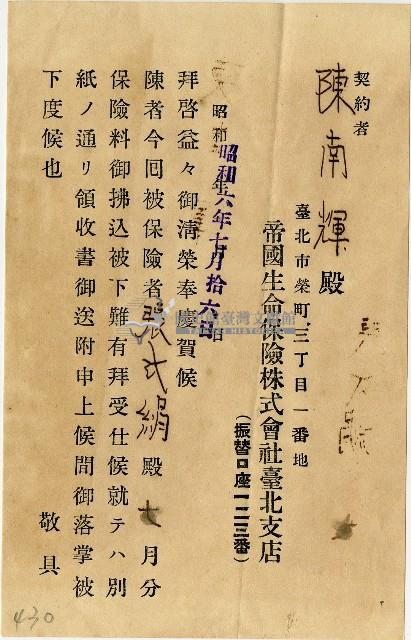 契約者
陳南輝殿
臺北市榮町三丁目一番地
帝國生命保險株式會社臺北支店
(振替口座一二三番)
昭和六年七月拾六日
拜啓益々御淸榮奉慶賀候
陳者今回被保險者張氏絹殿七月分
保險料御拂込被下難有拜受仕候就テハ別
紙ノ通リ領收書御送附申上候間御落掌被
下度候也
敬具
430